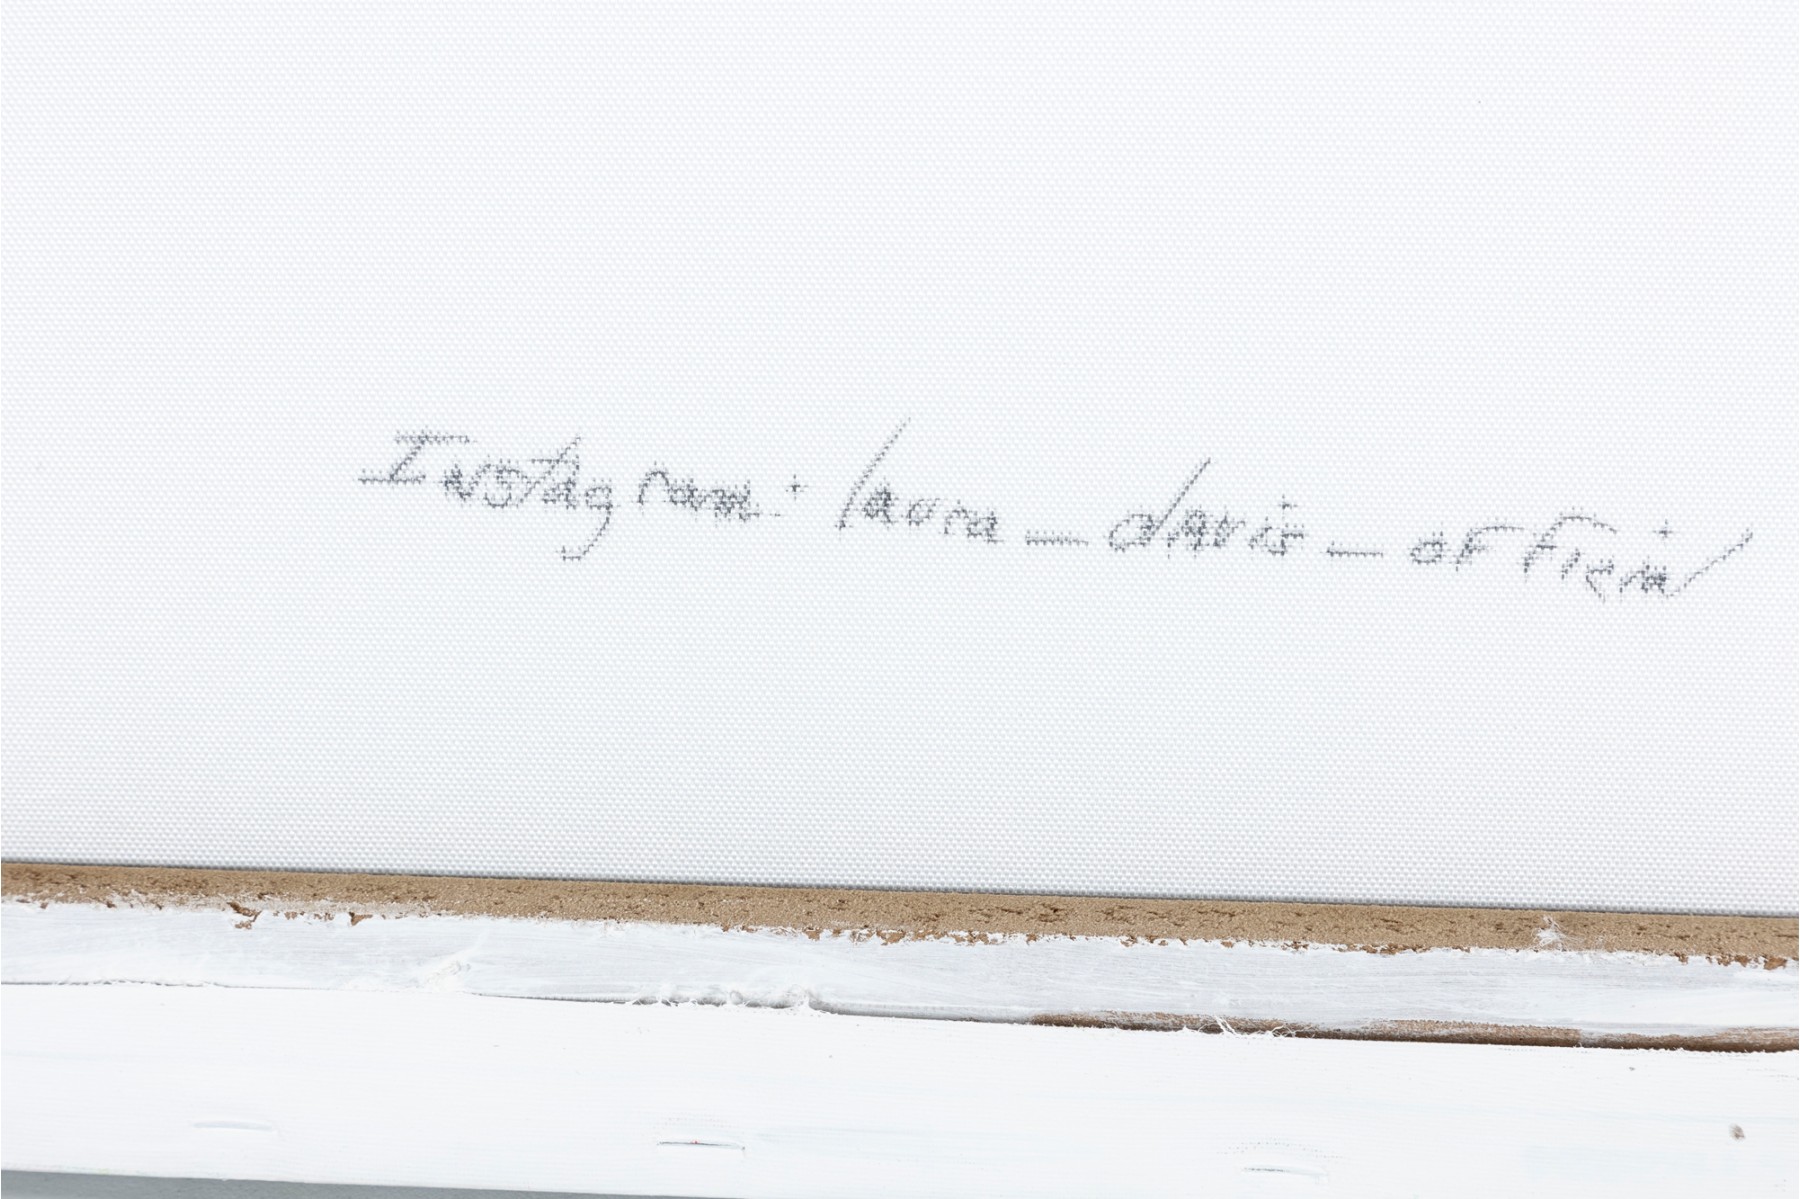 Instagram: laura_davis_official